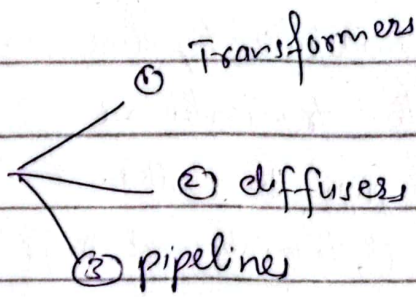 ① Transformers
② diffusers
③ pipelines